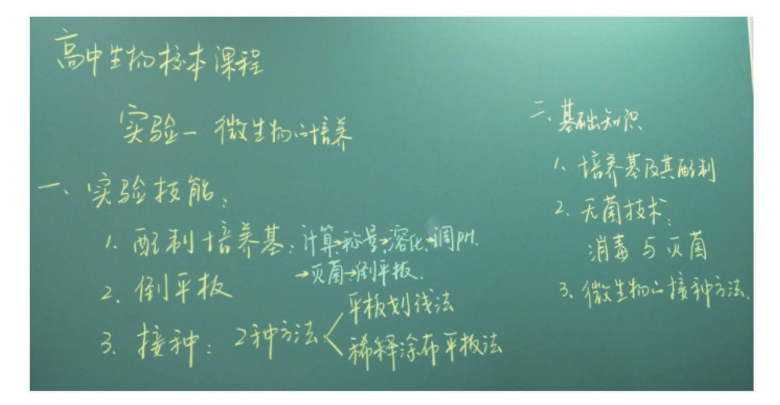 高中生物校本课程
实验一 微生物的培养
一、实验技能:
1. 配制培养基:计算→称量→溶化→调PH.
→灭菌→倒平板.
2. 倒平板
3. 接种:2种方法
平板划线法
稀释涂布平板法
二、基础知识
1、培养基及其配制
2、无菌技术:
消毒与灭菌
3、微生物的接种方法.